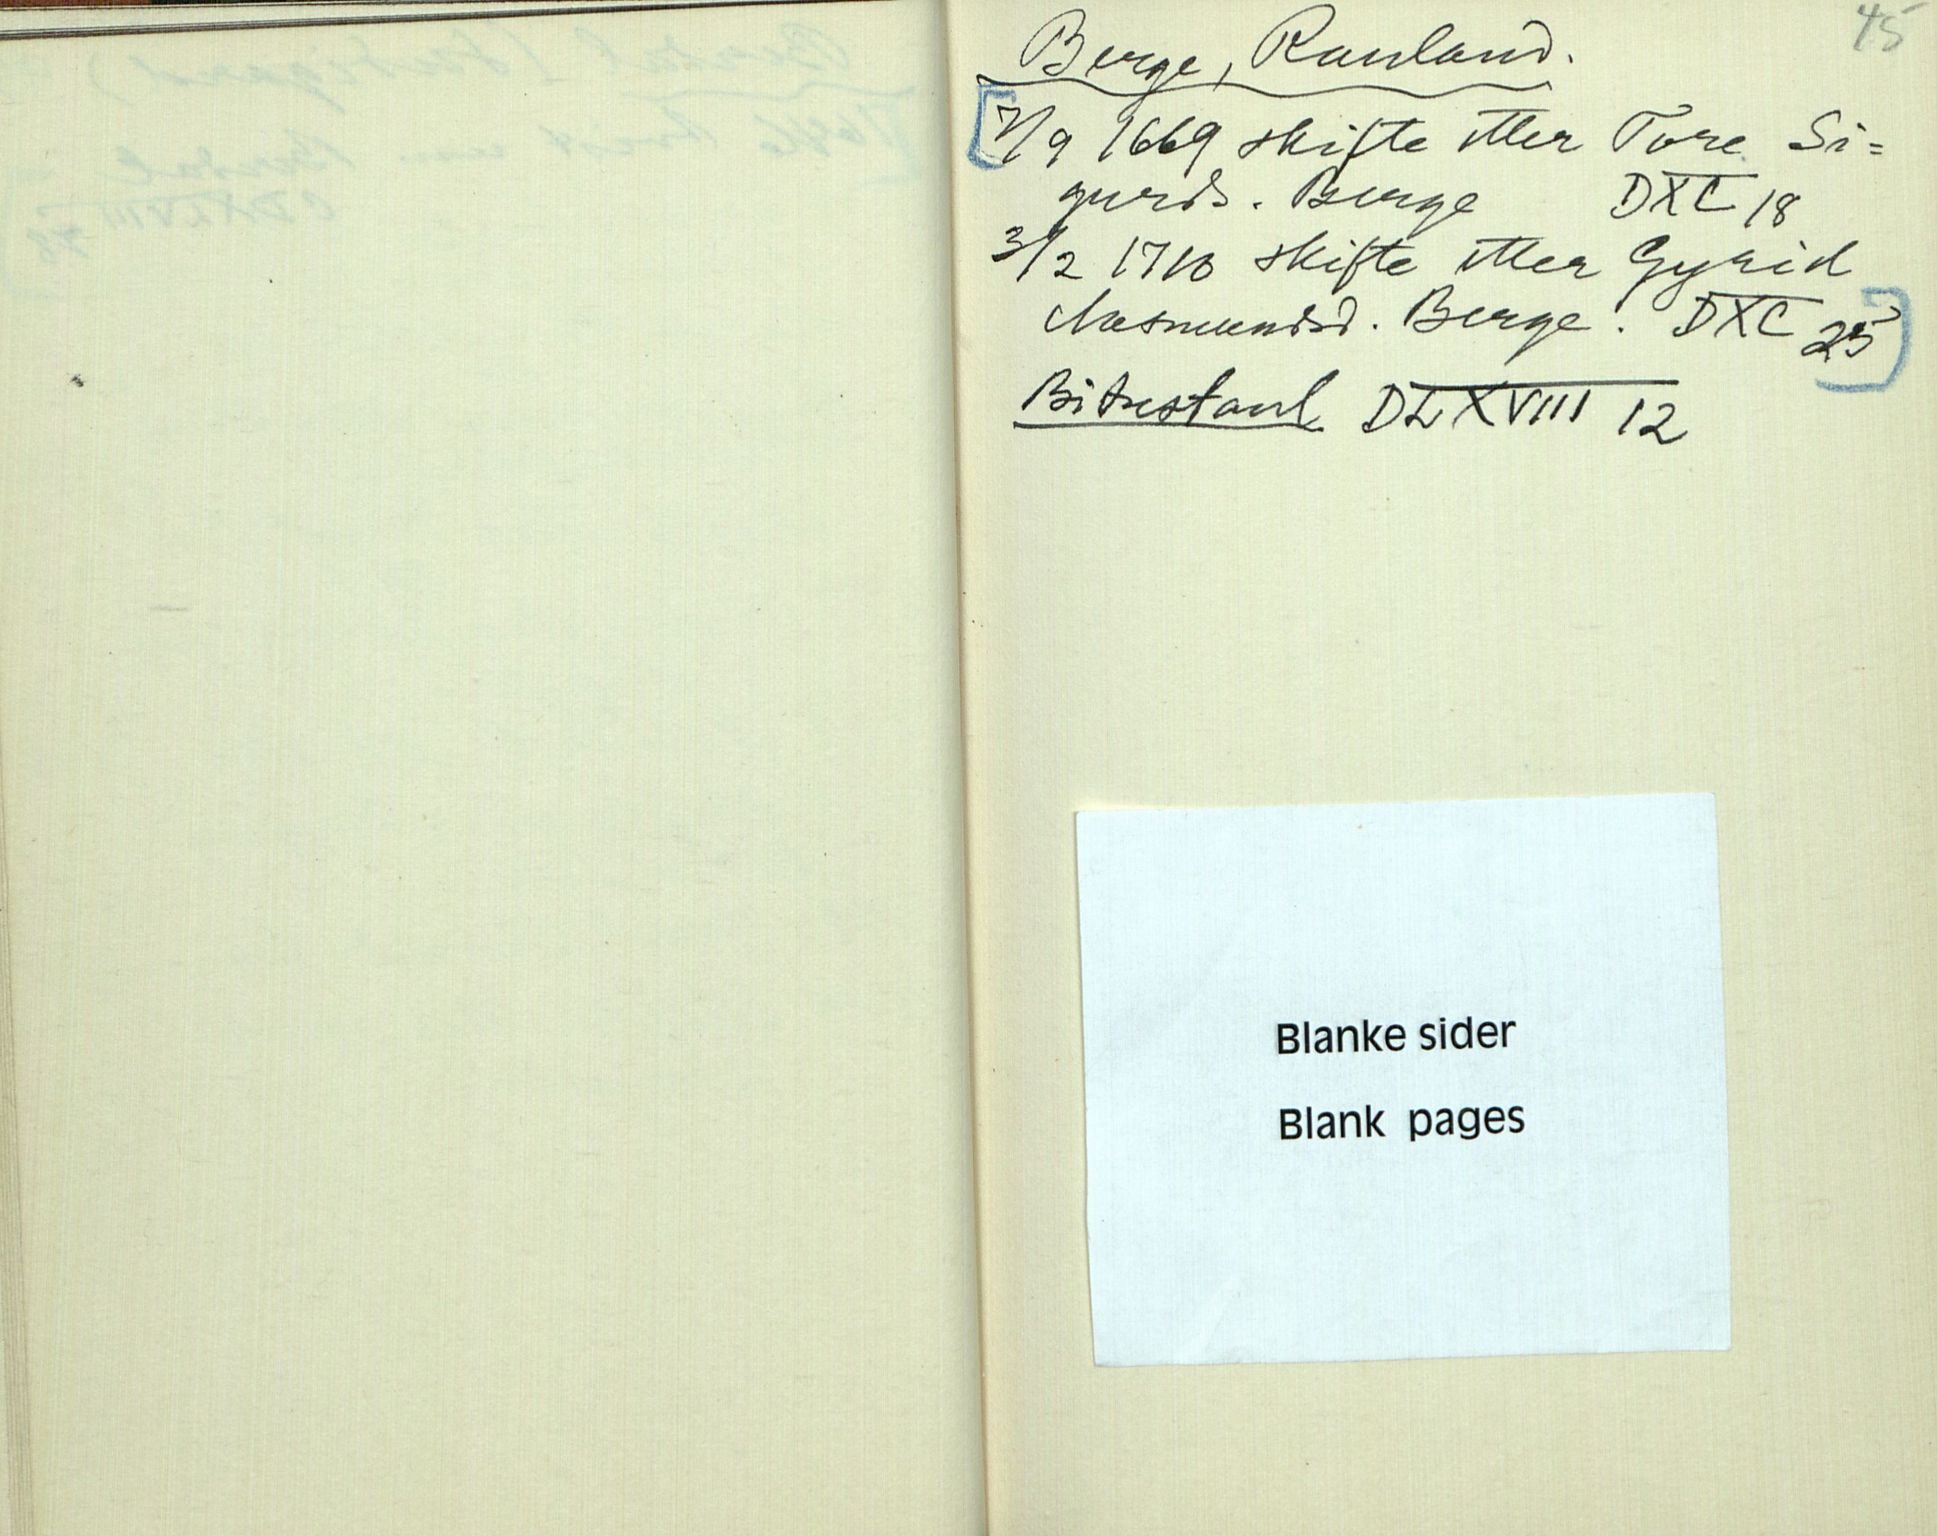 45
Berge, Rauland.
7/9 1669 skifte etter Tore Si=
gurds. Berge DXC 18
3/2 1710 skifte etter Gyrid
Aasmundsd. Berge. DXC 25
Bitustaul DLXVIII 12
Blanke sider
Blank pages